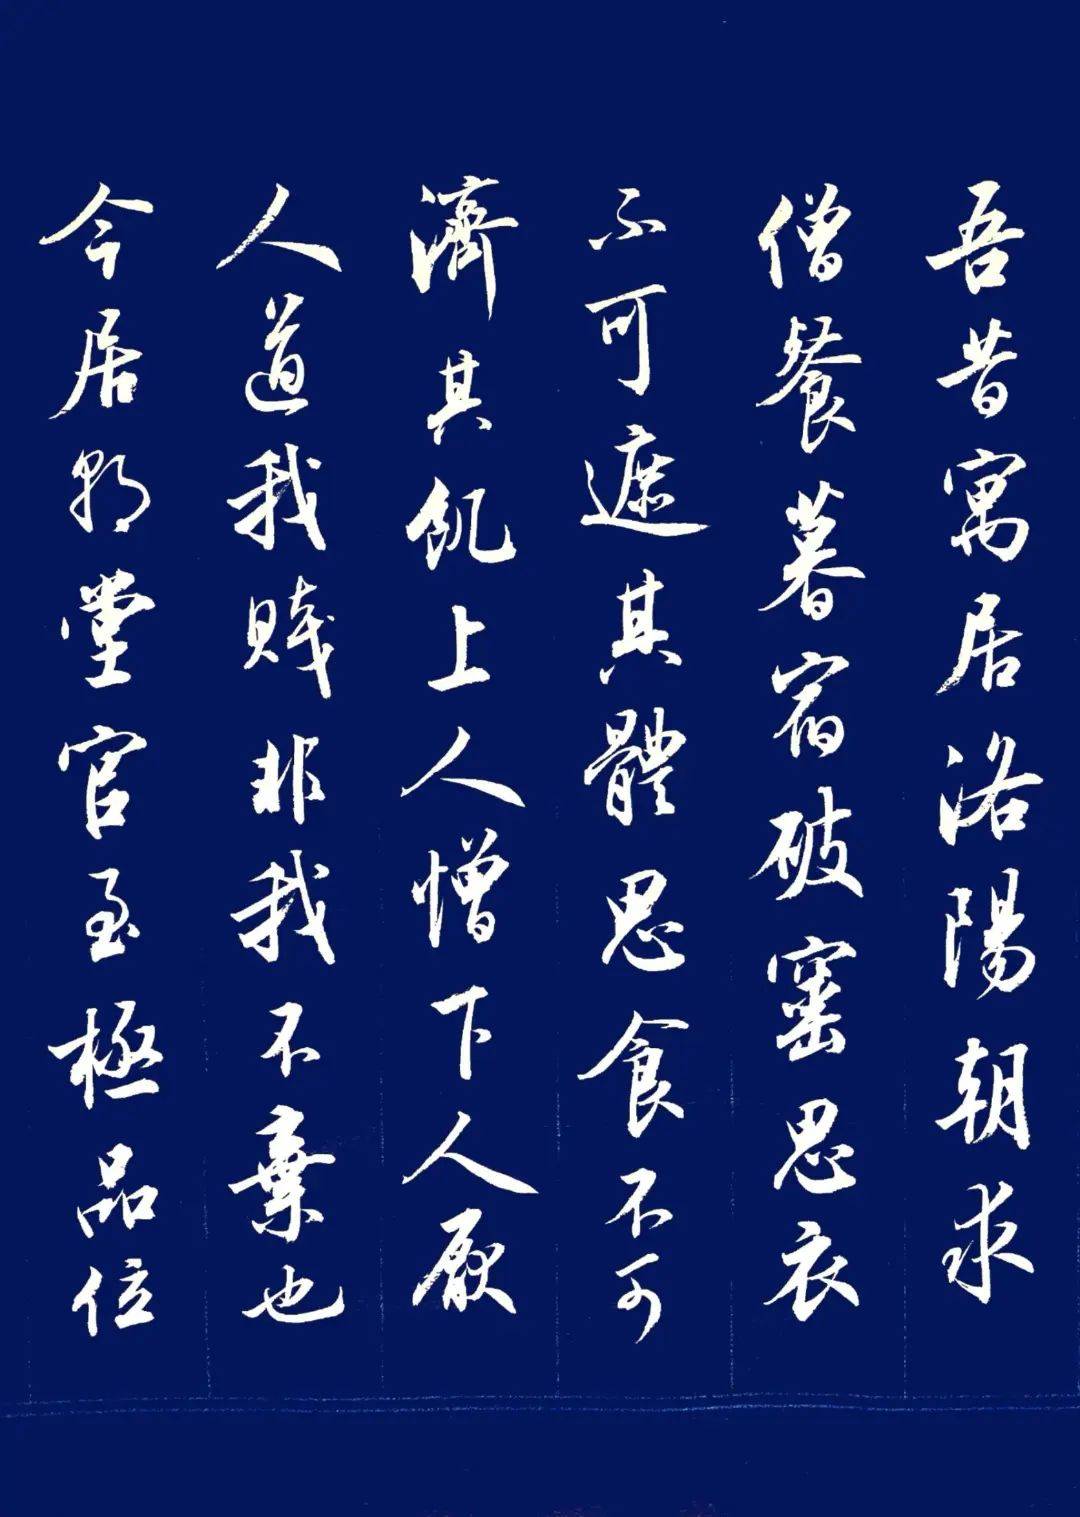 吾昔寓居洛陽朝求
僧餐暮宿破窰思衣
不可遮其體思食不可
濟其飢上人憎下人厭
人道我賤非我不棄也
今居朝堂官至極品位